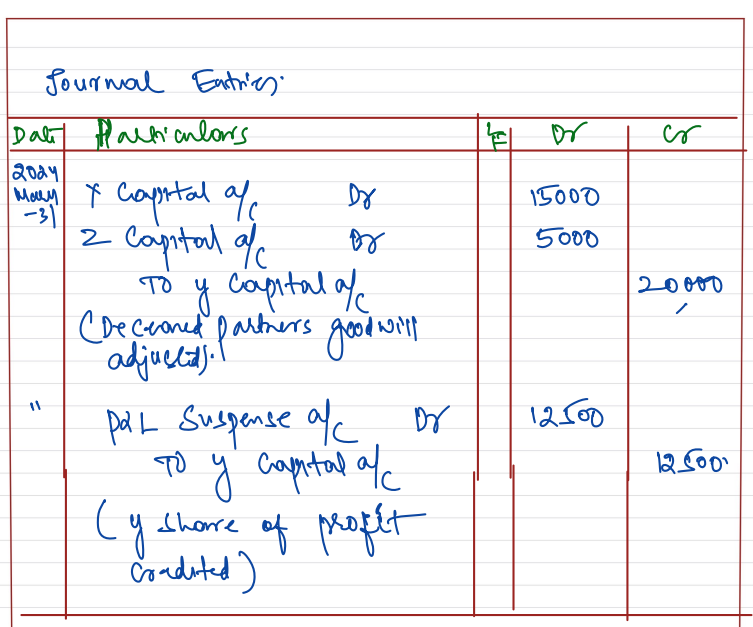 Journal Entries.
Date Particulars LF Dr Cr
2024
May
-31 X Capital a/c Dr 15000
Z Capital a/c Dr 5000
To y Capital a/c 20000
(Deceased partners goodwill
adjusted).
" P&L Suspense a/c Dr 12500
To y Capital a/c 12500
(y share of profit
credited)